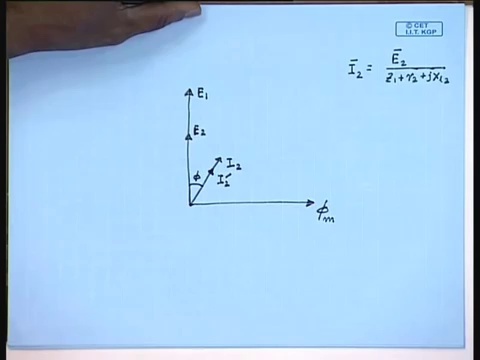 © CET
I.I.T. KGP
Ī₂ = Ē₂ / z₁+r₂+jx₁₂
E₁
E₂
φ
I₂
I₂′
φₘ